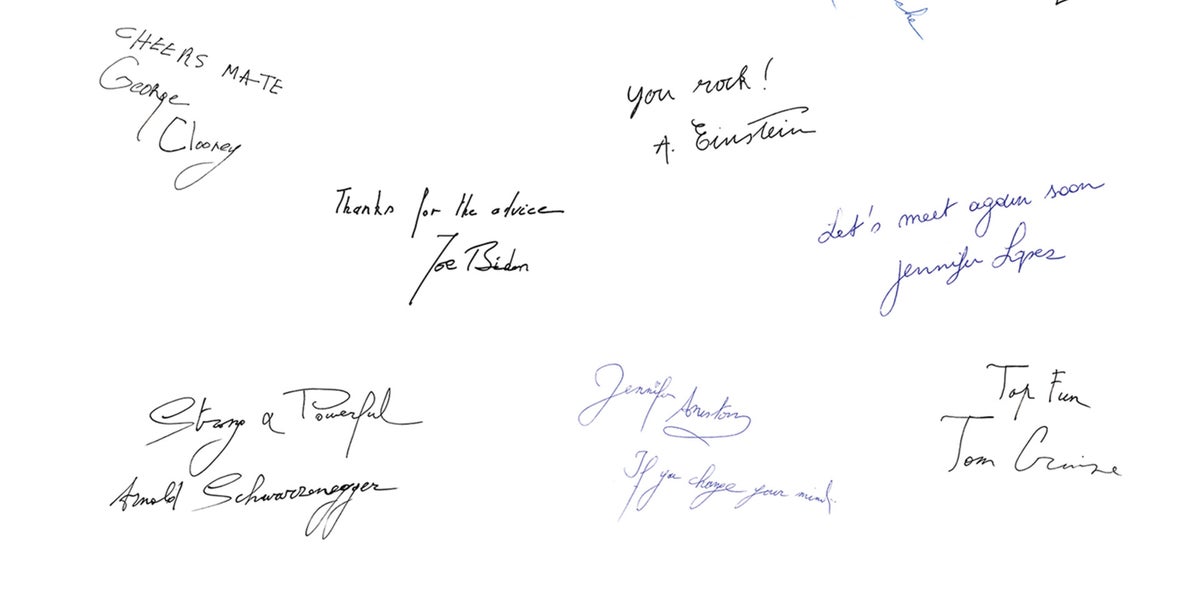 CHEERS MATE
George
Clooney
you rock!
A. Einstein
Thanks for the advice
Joe Biden
Let's meet again soon
Jennifer Lopez
Strong & Powerful
Arnold Schwarzenegger
Jennifer Aniston
If you change your mind.
Top Fun
Tom Cruise